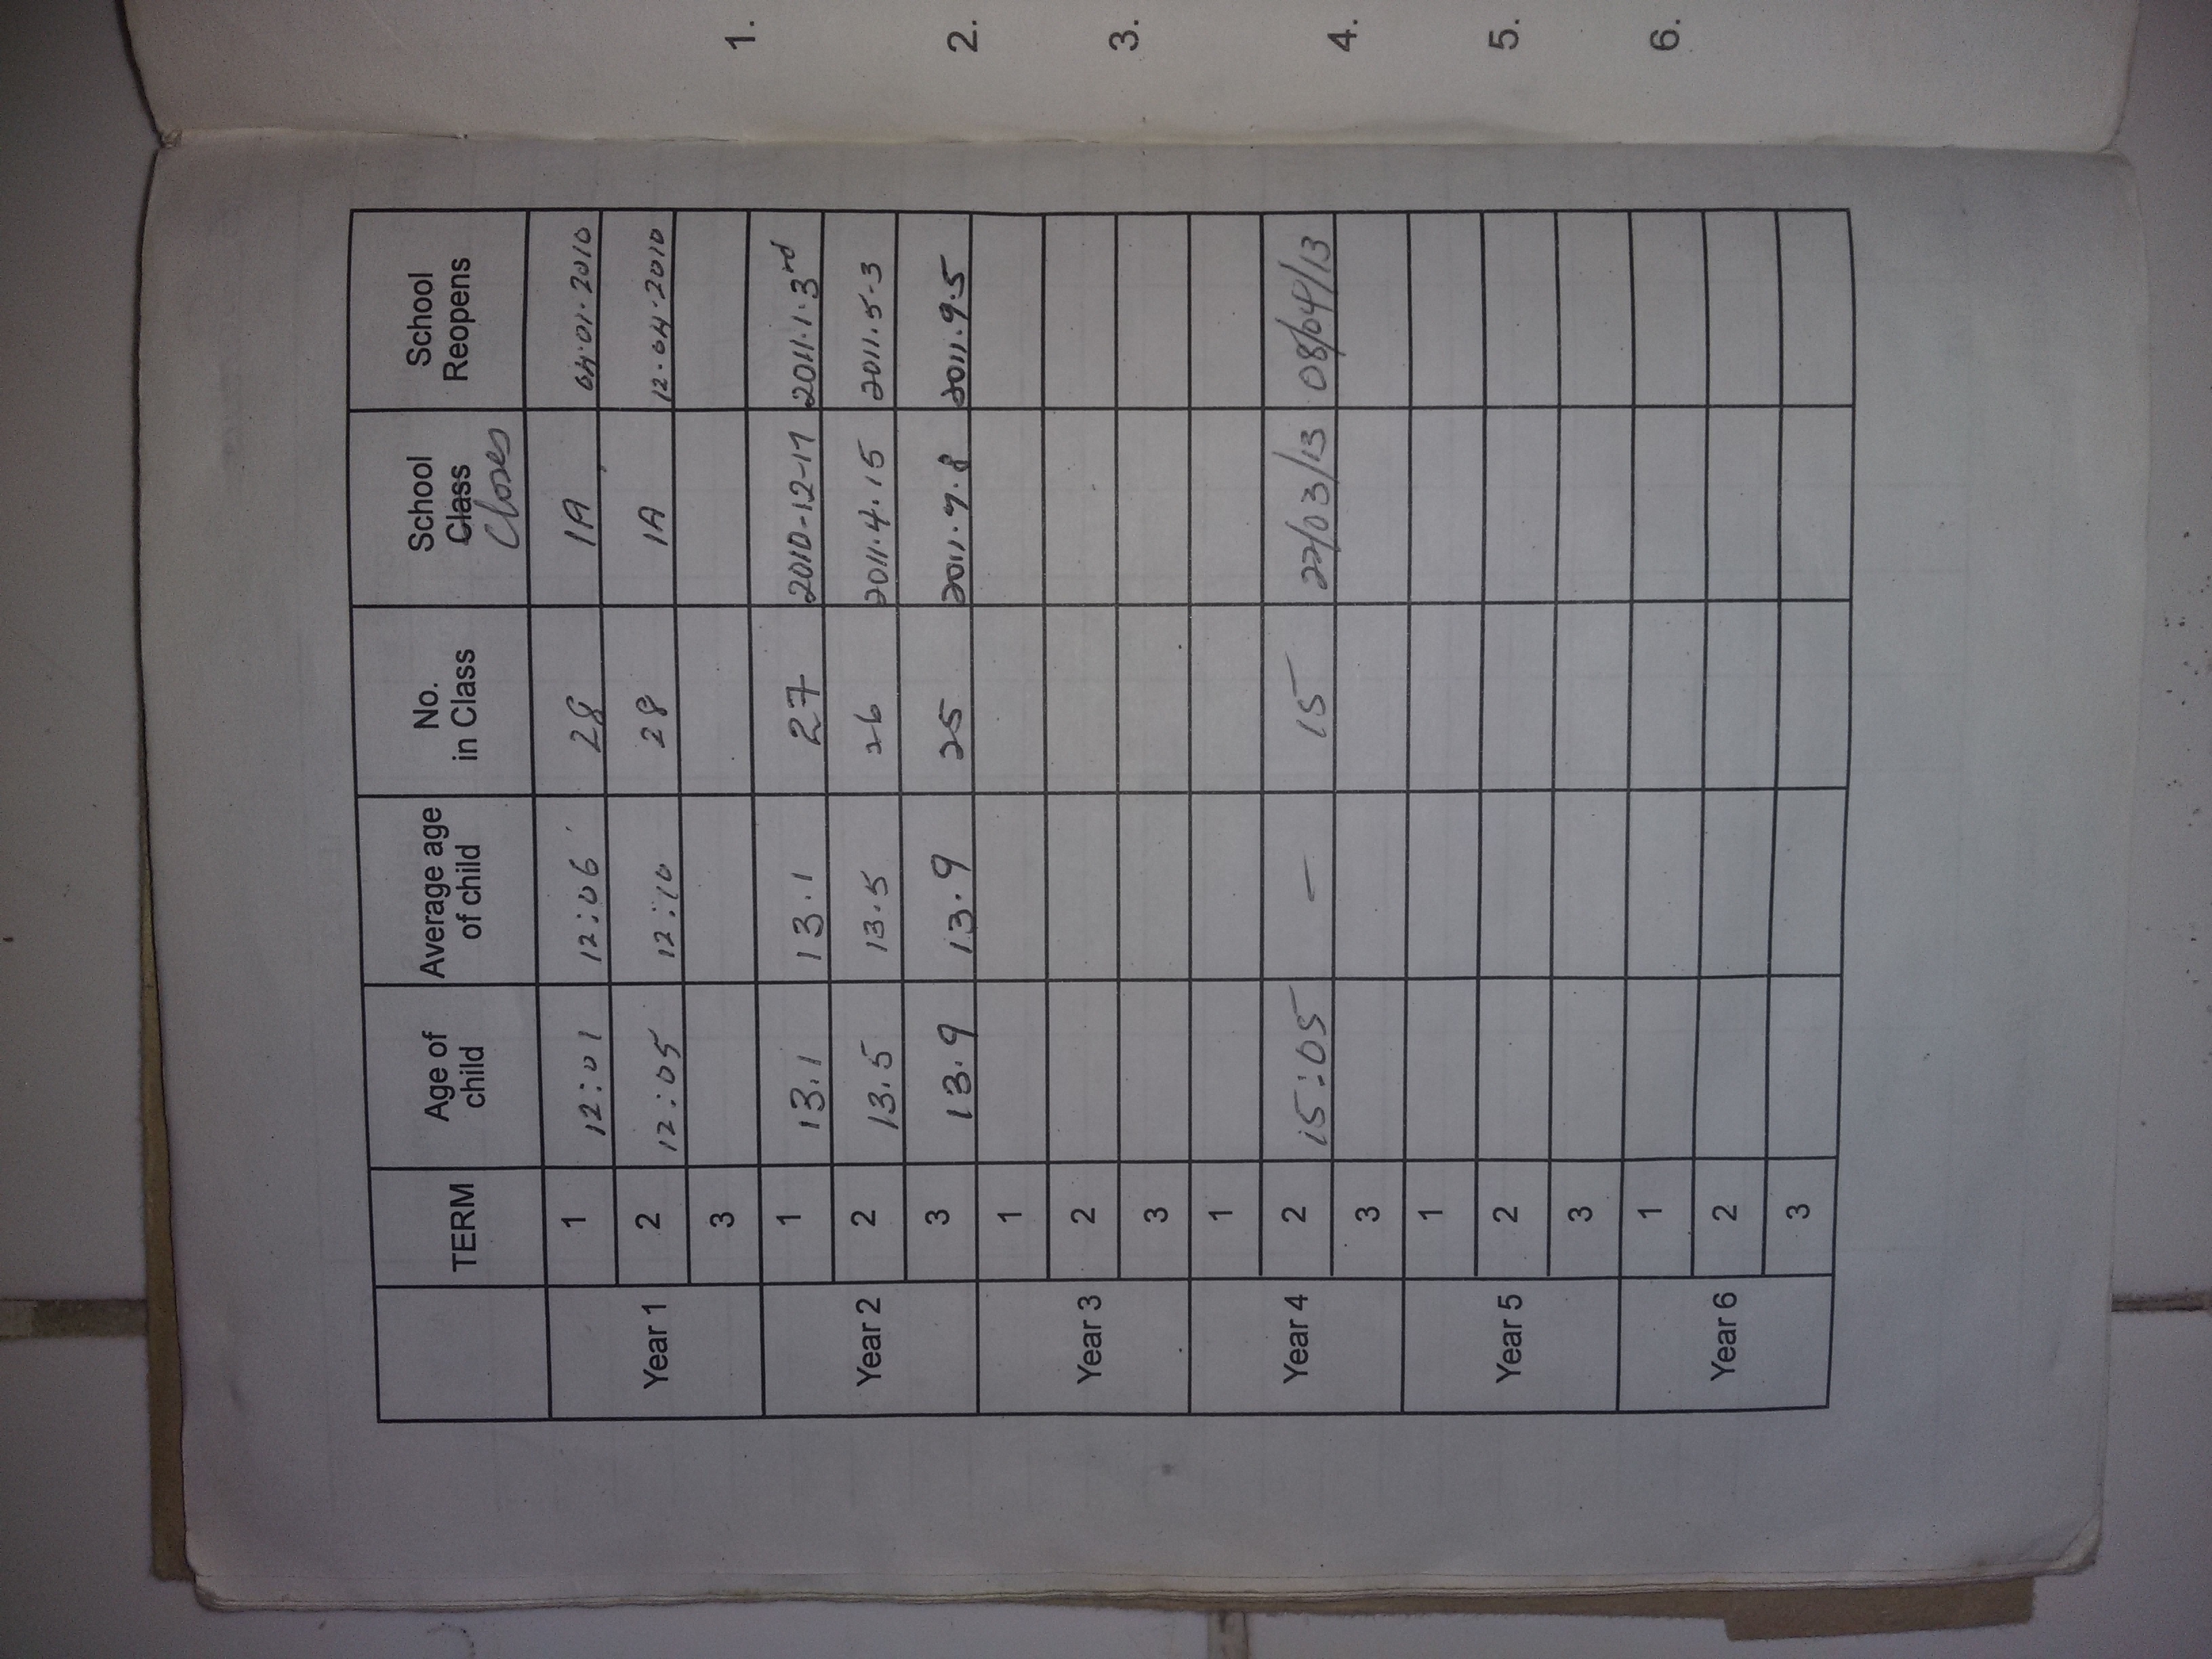 TERM Age of child Average age of child No. in Class School Class Closes School Reopens
Year 1
1 12:01 12:06 28 1A 04.01.2010
2 12:05 12:10 28 1A 12.04.2010
3
Year 2
1 13.1 13.1 27 2010-12-17 2011.1.3rd
2 13.5 13.5 26 2011.4.15 2011.5-3
3 13.9 13.9 25 2011.7.8 2011.9.5
Year 3
1
2
3
Year 4
1
2 15:05 — 15 22/03/13 08/04/13
3
Year 5
1
2
3
Year 6
1
2
3
1.
2.
3.
4.
5.
6.